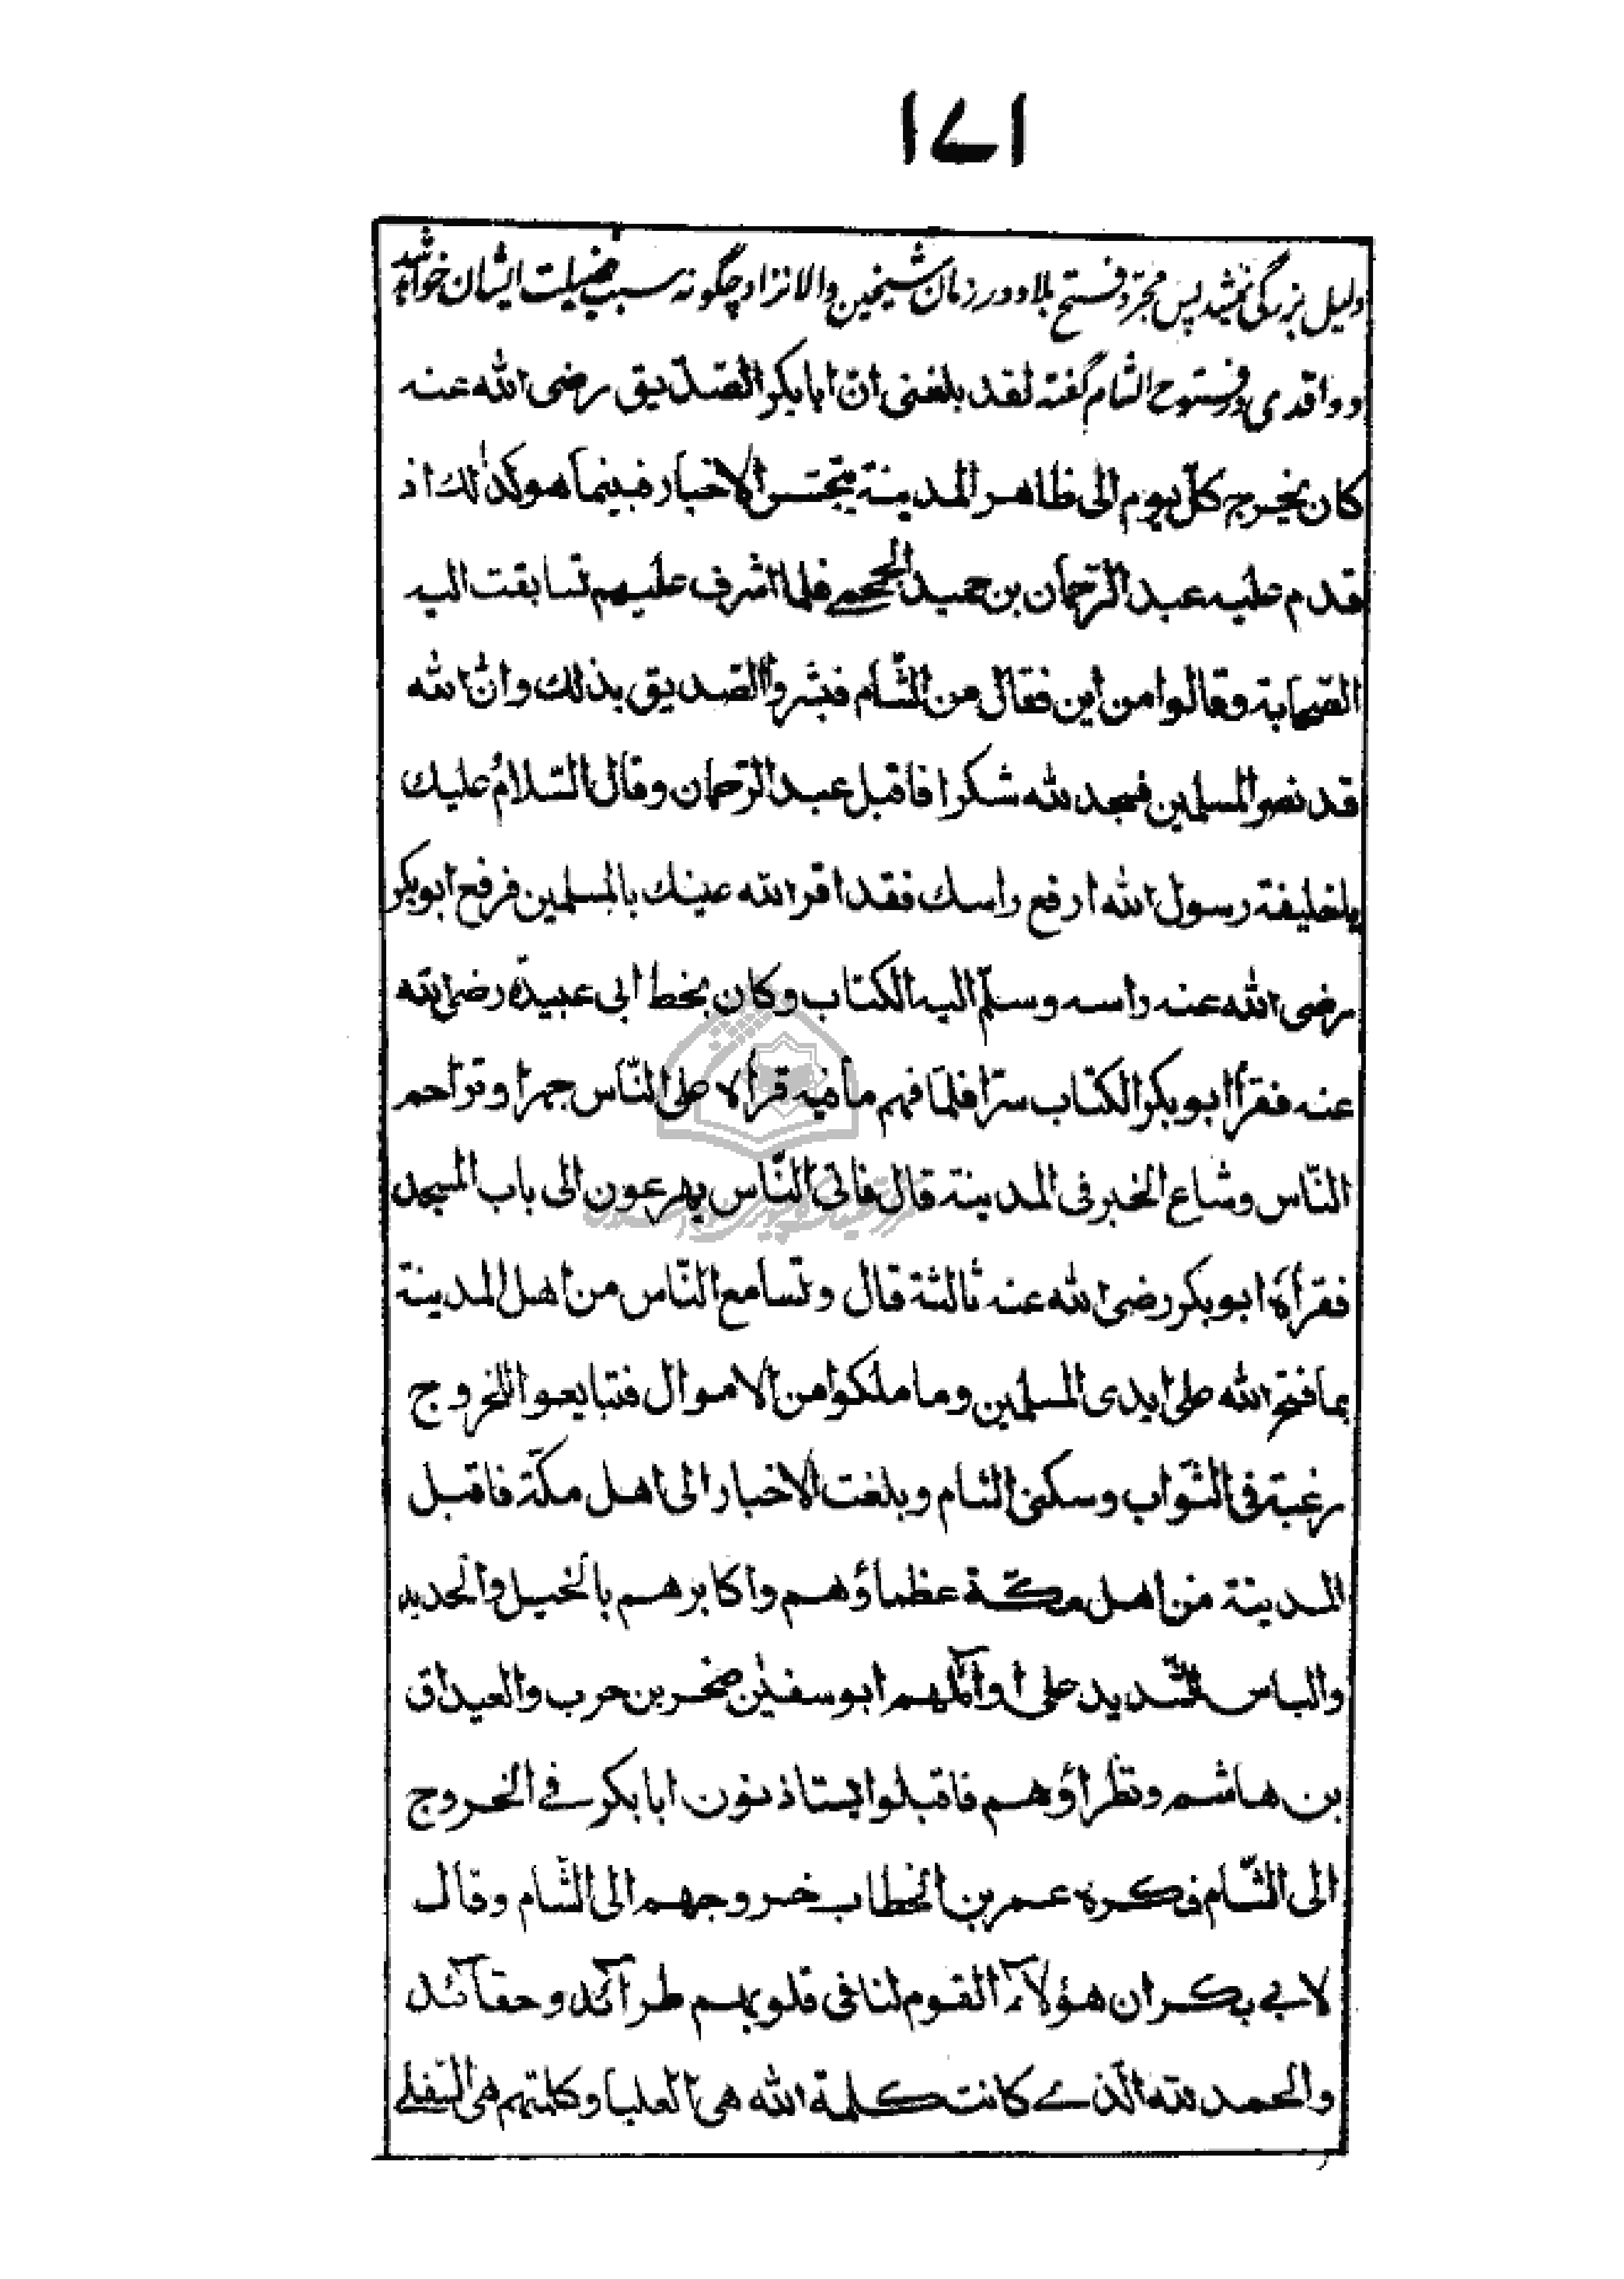 ۱۷۱
دلیل بزرگی نمیشد پس مجرد فستح بلاد در زمان شیخین والانژاد چگونه سبب فضیلت ایشان خواهد شد
و واقدی در فتوح الشام گفته لقد بلغنی انّ ابا بکر الصّدّیق رضی الله عنه
کان یخرج کلّ یوم الی ظاهر المدینة یتجسّس الاخبار فبینما هو کذٰلك اذ
قدم علیه عبد الرّحمان بن حمید الجمحے فلما اشرف علیهم تسابقت الیه
الصّحابة و قالوا من این فقال من الشّام فبشّروا الصّدیق بذلك وانّ الله
قد نصر المسلمین فسجد لله شکرا فاقبل عبد الرّحمان وقال السّلامُ علیك
یاخلیفة رسول الله ارفع راسك فقد اقر الله عینك بالمسلمین فرفع ابو بکر
رضی الله عنه راسه وسلّم الیه الکتاب وکان بخط ابی عبیدة رضی الله
عنه فقرأ ابو بکر الکتاب سرّا فلمّا فهم ما فیه قرأه علی النّاس جهرا وتزاحم
النّاس وشاع الخبر فی المدینة قال فاتی النّاس یهرعون الی باب المسجد
فقرأه ابو بکر رضی الله عنه ثالثة قال وتسامع النّاس من اهل المدینة
بما فتح الله علی ایدی المسلمین وما ملکوا من الاموال فتبایعوا للخروج
رغبة فی الثّواب وسکنی الشام وبلغت الاخبار الی اهل مکّة فاقبل
المدینة من اهل مکّة عظماؤهم واکابرهم بالخیل والحدید
والباس الشّدید علی اوآئلهم ابو سفیٰن صخر بن حرب والعیداق
بن هاشم ونظراؤهم فاقبلوا یستاذنون ابا بکر فے الخروج
الی الشّام فکره عمر بن الخطاب خروجهم الی الشّام وقال
لابی بکر ان هؤلآء القوم لنا فی قلوبهم طرآئد وحقآئد
والحمد لله الّذے کانت کلمة الله هی العلیا وکلمتهم هی السّفلے